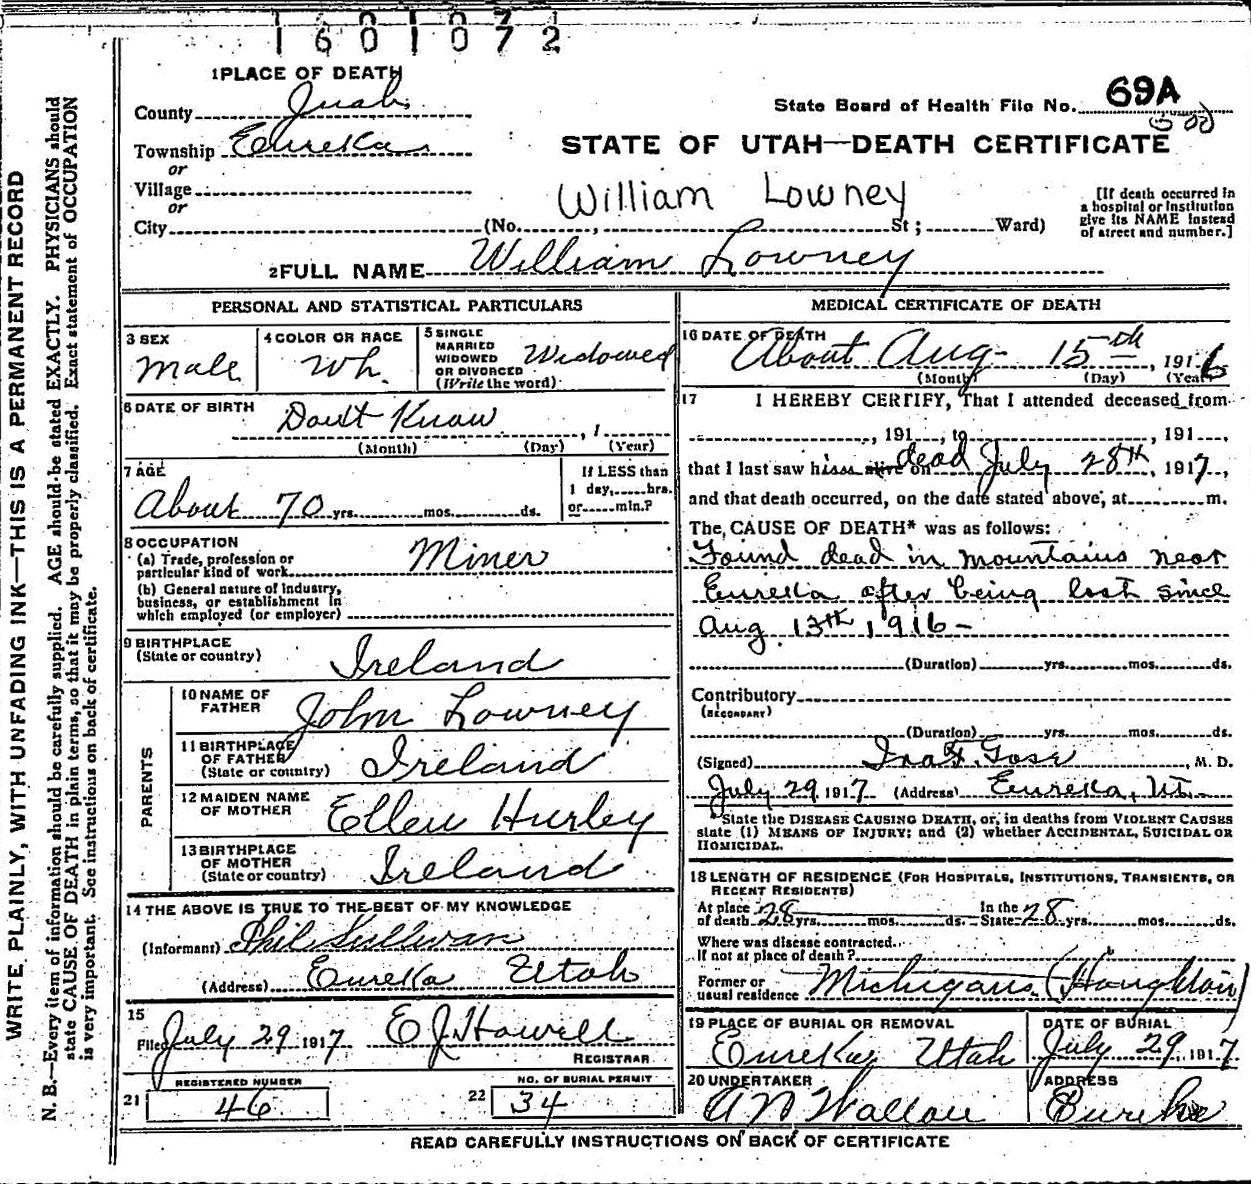 1601072
1 PLACE OF DEATH
County Juab
State Board of Health File No. 69A
Township Eureka
or
STATE OF UTAH—DEATH CERTIFICATE
Village
or
William Lowney
[If death occurred in
a hospital or institution
give its NAME instead
of street and number.]
City (No. , St ; Ward)
2 FULL NAME William Lowney
PERSONAL AND STATISTICAL PARTICULARS
3 SEX
Male
4 COLOR OR RACE
Wh.
5 SINGLE
MARRIED
WIDOWED
OR DIVORCED
(Write the word)
Widowed
6 DATE OF BIRTH
Dont Know , 1
(Month) (Day) (Year)
7 AGE
About 70 yrs. mos. ds.
If LESS than
1 day, hrs.
or min.?
8 OCCUPATION
(a) Trade, profession or
particular kind of work Miner
(b) General nature of industry,
business, or establishment in
which employed (or employer)
9 BIRTHPLACE
(State or country) Ireland
PARENTS
10 NAME OF
FATHER John Lowney
11 BIRTHPLACE
OF FATHER
(State or country) Ireland
12 MAIDEN NAME
OF MOTHER Ellen Hurley
13 BIRTHPLACE
OF MOTHER
(State or country) Ireland
14 THE ABOVE IS TRUE TO THE BEST OF MY KNOWLEDGE
(Informant) Phil Sullivan
(Address) Eureka Utah
15
Filed July 29 1917 E J. Howell
REGISTRAR
REGISTERED NUMBER
21 46
NO. OF BURIAL PERMIT
22 34
MEDICAL CERTIFICATE OF DEATH
16 DATE OF DEATH
About Aug- 15th , 1916
(Month) (Day) (Year)
17 I HEREBY CERTIFY, That I attended deceased from
, 191 , to , 191 ,
that I last saw him alive on dead July 28th, 1917,
and that death occurred, on the date stated above, at m.
The CAUSE OF DEATH* was as follows:
Found dead in mountains near
Eureka after being lost since
Aug. 13th, 1916-
(Duration) yrs. mos. ds.
Contributory
(SECONDARY)
(Duration) yrs. mos. ds.
(Signed) Ira , M. D.
July 29 1917 (Address) Eureka, Ut.
*State the DISEASE CAUSING DEATH, or, in deaths from VIOLENT CAUSES
state (1) MEANS OF INJURY; and (2) whether ACCIDENTAL, SUICIDAL OR
HOMICIDAL.
18 LENGTH OF RESIDENCE (FOR HOSPITALS, INSTITUTIONS, TRANSIENTS, OR
RECENT RESIDENTS)
At place In the
of death 28 yrs. mos. ds. State 28 yrs. mos. ds.
Where was disease contracted
if not at place of death?
Former or
usual residence Michigan (Houghton)
19 PLACE OF BURIAL OR REMOVAL
Eureka, Utah
DATE OF BURIAL
July 29, 1917
20 UNDERTAKER
ADDRESS
Eureka
READ CAREFULLY INSTRUCTIONS ON BACK OF CERTIFICATE
WRITE PLAINLY, WITH UNFADING INK—THIS IS A PERMANENT RECORD
N. B.—Every item of information should be carefully supplied. AGE should be stated EXACTLY. PHYSICIANS should
state CAUSE OF DEATH in plain terms, so that it may be properly classified. Exact statement of OCCUPATION
is very important. See instructions on back of certificate.